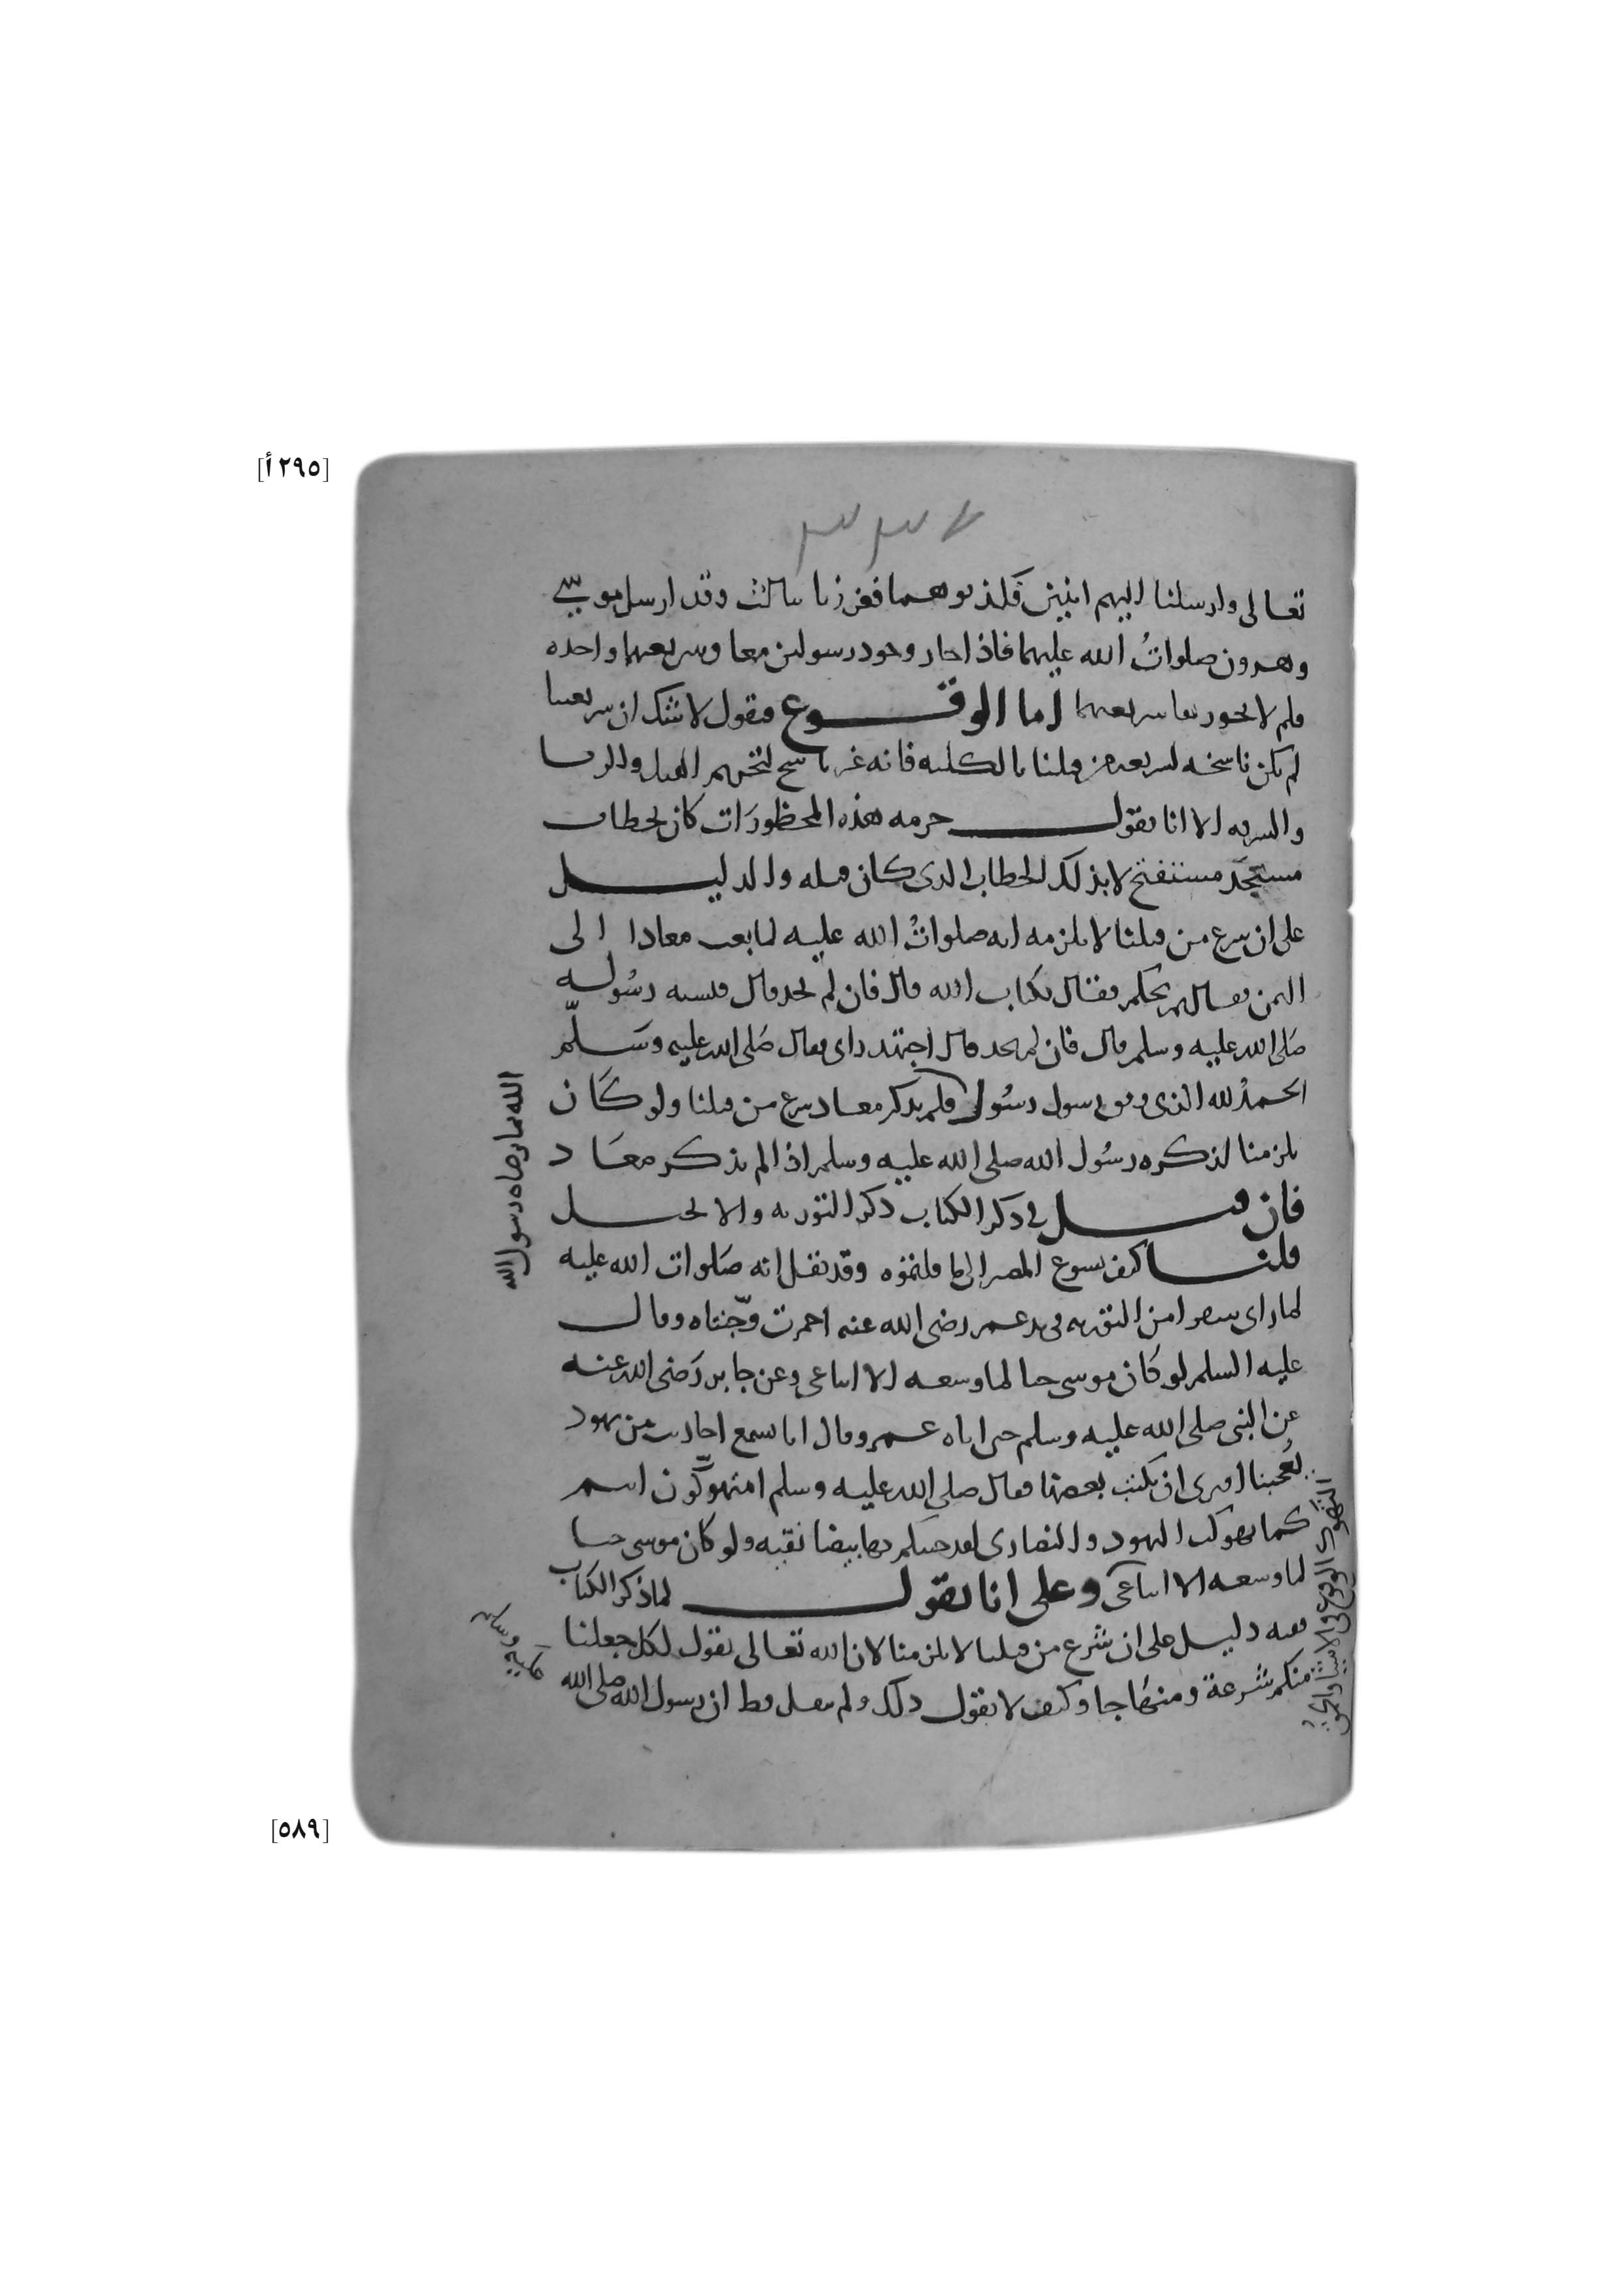 [٢٩٥ أ]
تعالى وارسلنا اليهم اثنين فكذبوهما فعززنا بثالث وقد ارسل موسى
وهرون صلواتُ الله عليهما فاذا جاز وجود رسولين معا وشريعتهما واحده
فلم لا يجوز بعد شريعتهما اما الوقوع فنقول لا شك ان شريعتنا
لم تكن ناسخه لشريعه من قبلنا بالكليه فانه غير ناسخ لتحريم القتل والزنا
والسرقه الا انا نقول حرمه هذه المحظورَات كان بخطاب
مستجدّ مستفتح لا بذلك الخطاب الذى كان قبله والدليل
على ان شرع من قبلنا لا يلزمه انه صلواتُ الله عليه لما بعث معاذا الى
اليمن فقال بم تحكم فقال بكتاب الله قال فان لم تجد قال فبسنه رسُوله
صَلى الله عليه وسلم قال فان لم تجد قال اجتهد راى فقال صَلى الله عليه وسَلّم
الحمدُ لله الذى وفق رسول رسُول فلم يذكر معاذ شرع من قبلنا ولو كَان
يلزمنا لذكره رسُول الله صلى الله عليه وسلم اذا لم يذكر معَاذ
الله لما يرضاه رسول الله
فان قيل فى ذكر الكتاب ذكر التوريه والانجيل
قلنا كيف يسوغ المصير الى ما قلتموه وقد نقل انه صَلوات الله عليه
لما راى سفرا من التوريه فى يد عمر رضى الله عنه احمرت وجنتاه وقال
عليه السلم لو كان موسى حيا لما وسعه الا اتباعى وعن جابر رَضى الله عنه
عن النبى صلى الله عليه وسلم حين اتاه عمر وقال انا نسمع احاديث من يهود
تُعجبنا افترى ان نكتب بعضها فقال صلى الله عليه وسلم امتهوّكون انتم
كما تهوكت اليهود والنصارى لقد جئتكم بها بيضا نقيه ولو كان موسى حيا
لما وسعه الا اتباعى وعلى انا نقول لما ذكر الكتاب
ففيه دليل على ان شرع من قبلنا لا يلزمنا لان الله تعالى يقول لكل جعلنا
منكم شرعة ومنهَاجا وكيف لا نقول ذلك ولم ينقل قط ان رسول الله صلى الله
عليه وسلم
[٥٨٩]